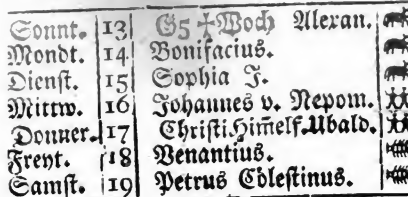 Sonnt. 13 G5 ┼ Woch Alexan.
Mondt. 14 Bonifacius.
Dienst. 15 Sophia J.
Mittw. 16 Johannes v. Nepom.
Donner. 17 Christi Him̃elf. Ubald.
Freyt. 18 Venantius.
Samst. 19 Petrus Cölestinus.